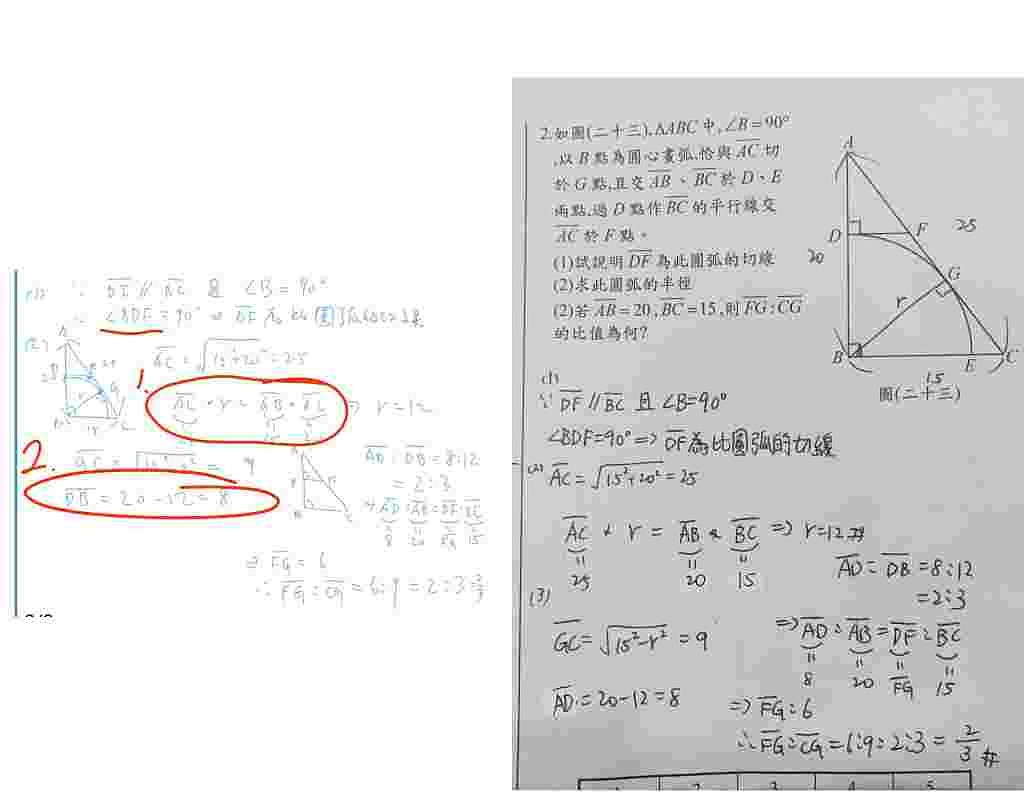 (1) ∵ DF // BC 且 ∠B = 90°
∠BDF = 90° ⇒ DF為此圓弧的切線
(2)
AC = √15²+20² = 25
1.
AC · r = AB · BC ⇒ r = 12
2.
GC = √15²-r² = 9
DB = 20 - 12 = 8
AD : DB = 8:12
= 2:3
⇒ AD : AB = DF : BC
8 20 FG 15
⇒ FG = 6
∴ FG : CG = 6:9 = 2:3
2.如圖(二十三),ΔABC中,∠B=90°
,以B點為圓心畫弧,恰與AC切
於G點,且交AB、BC於D、E
兩點,過D點作BC的平行線交
AC於F點。
(1)試說明DF為此圓弧的切線
(2)求此圓弧的半徑
(3)若AB=20,BC=15,則FG:CG
的比值為何?
A
D F 25
20
G
r
B E C
15
圖(二十三)
(1)
∵ DF // BC 且 ∠B=90°
∠BDF=90° ⇒ DF為比圓弧的切線
(2) AC = √15²+20² = 25
AC * r = AB * BC ⇒ r=12 #
25 20 15
(3)
GC = √15²-r² = 9
AD = 20-12 = 8
AD = DB = 8:12
= 2:3
⇒ AD : AB = DF : BC
8 20 FG 15
⇒ FG = 6
∴ FG = CG = 6:9 = 2:3 = 2/3 #
1 2 3 4 5